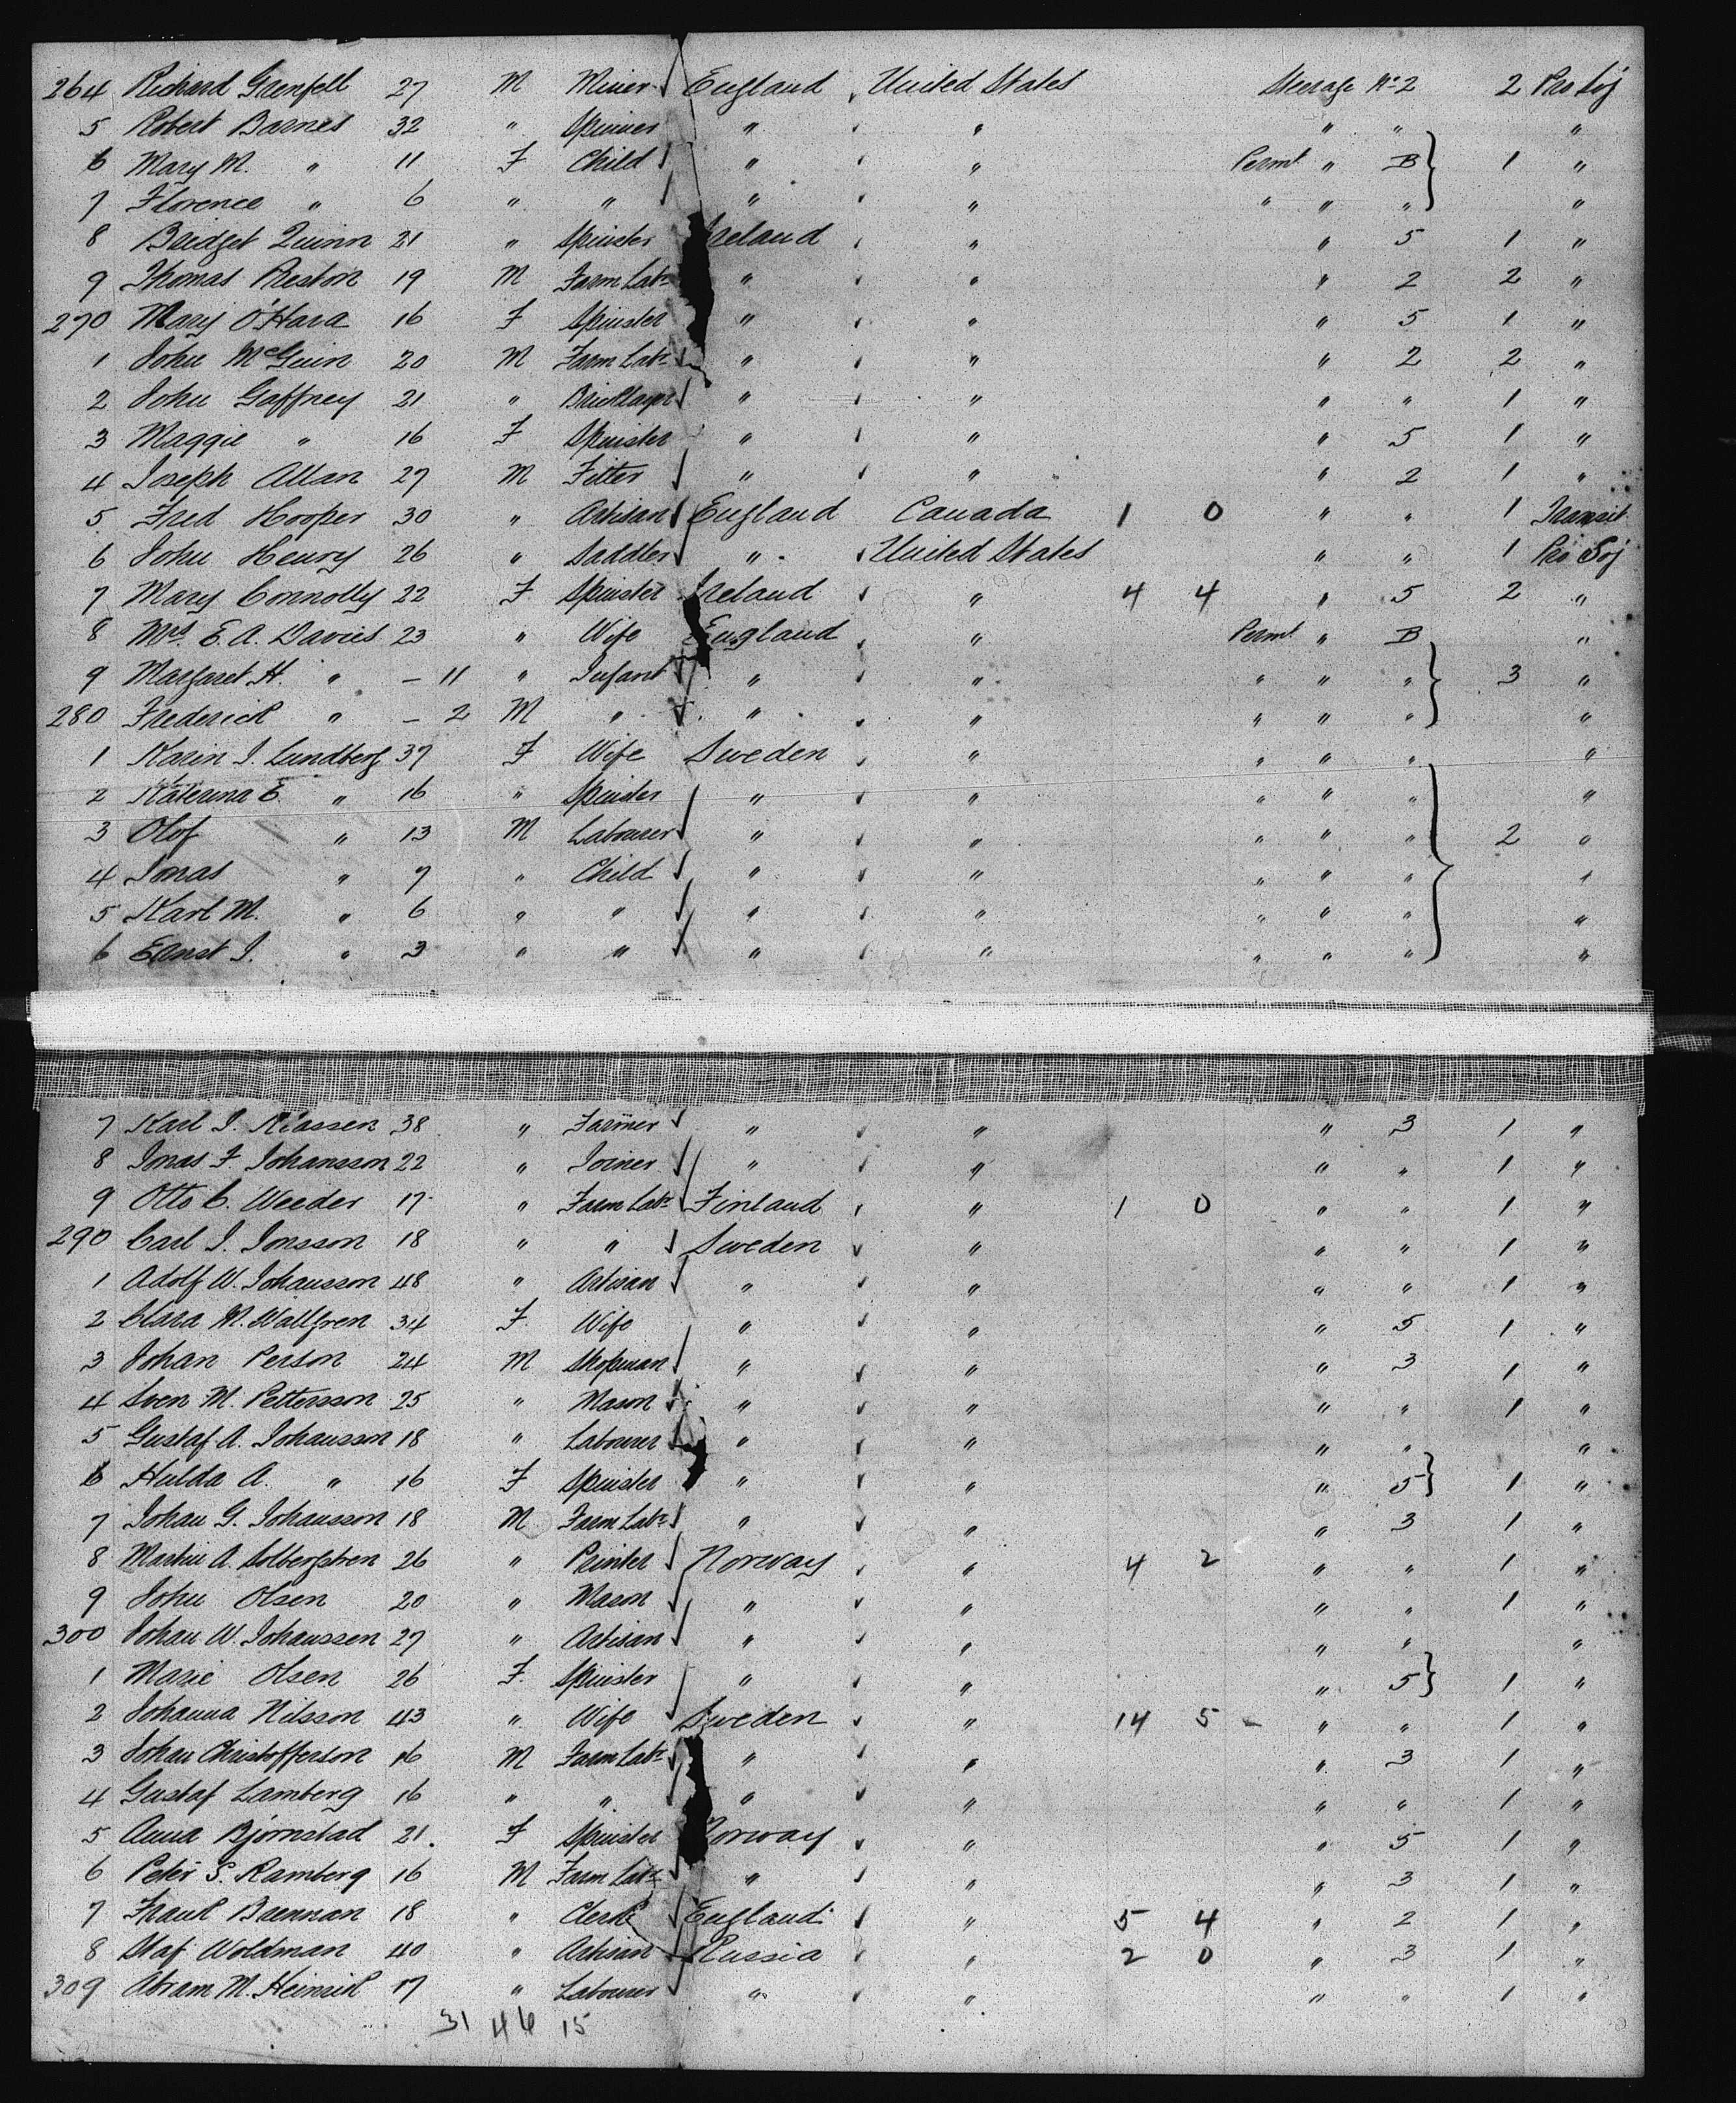 264 Richard Grenfell 27 M Miner England United States Steerage No 2 2 Pro Soj
5 Robert Barnes 32 " Spinner " " " " "
6 Mary M. " 11 F Child " " Permt " B 1 "
7 Florence " 6 " " " " " " " "
8 Bridget Quinn 21 " Spinster Ireland " " 5 1 "
9 Thomas Preston 19 M Farm Labr " " " 2 2 "
270 Mary O'Hara 16 F Spinster " " " 5 1 "
1 John McGuin 20 M Farm Labr " " " 2 2 "
2 John Gaffney 21 " Bricklayer " " " " 1 "
3 Maggie " 16 F Spinster " " " 5 1 "
4 Joseph Allan 27 M Fitter " " " 2 1 "
5 Fred Hooper 30 " Artisan England Canada 1 0 " " 1 Transit
6 John Henry 26 " Saddler " United States " " 1 Pro Soj
7 Mary Connolly 22 F Spinster Ireland " 4 4 " 5 2 "
8 Mrs. E. A. Davies 23 " Wife England " Permt " B "
9 Margaret H. " - 11 " Infant " " " " " 3 "
280 Frederick " - 2 M " " " " " " "
1 Karin J. Lundberg 37 F Wife Sweden " " " " "
2 Katerina E. " 16 " Spinster " " " " " "
3 Olof " 13 M Labourer " " " " " 2 "
4 Jonas " 7 " Child " " " " " "
5 Karl M. " 6 " " " " " " " "
6 Ernst J. " 3 " " " " " " " "
7 Karl J. Klassen 38 " Farmer " " " 3 1 "
8 Jonas F. Johansson 22 " Joiner " " " " 1 "
9 Otto C. Weeder 17 " Farm Labr Finland " 1 0 " " 1 "
290 Carl J. Jonsson 18 " " Sweden " " " 1 "
1 Adolf W. Johansson 48 " Artisan " " " " 1 "
2 Clara M. Wallgren 34 F. Wife " " " 5 1 "
3 Johan Person 24 M Shopman " " " 3 1 "
4 Sven M. Pettersson 25 " Mason " " " " 1 "
5 Gustaf A. Johansson 18 " Labourer " " " " "
6 Hulda A. " 16 F Spinster " " " 5 1 "
7 Johan G. Johansson 18 M Farm Labr " " " 3 1 "
8 Martin A. Solbergstren 26 " Printer Norway " 4 2 " " 1 "
9 John Olsen 20 " Mason " " " " 1 "
300 Johan W. Johanssen 27 " Artisan " " " " "
1 Marie Olsen 26 F. Spinster " " " 5 1 "
2 Johanna Nilsson 43 " Wife Sweden " 14 5 - " " 1 "
3 Johan Christofferson 16 M Farm Labr " " " 3 1 "
4 Gustaf Lamberg 16 " " " " " " 1 "
5 Anna Bjornstad 21. F Spinster Norway " " 5 1 "
6 Peter S. Ramberg 16 M Farm Labr " " " 3 1 "
7 Frank Brennan 18 " Clerk England " 5 4 " 2 1 "
8 Woldman 40 " Artisan Russia " 2 0 " 3 1 "
309 Abram M. Heinrik 17 " Labourer " " " " 1 "
31 46 15